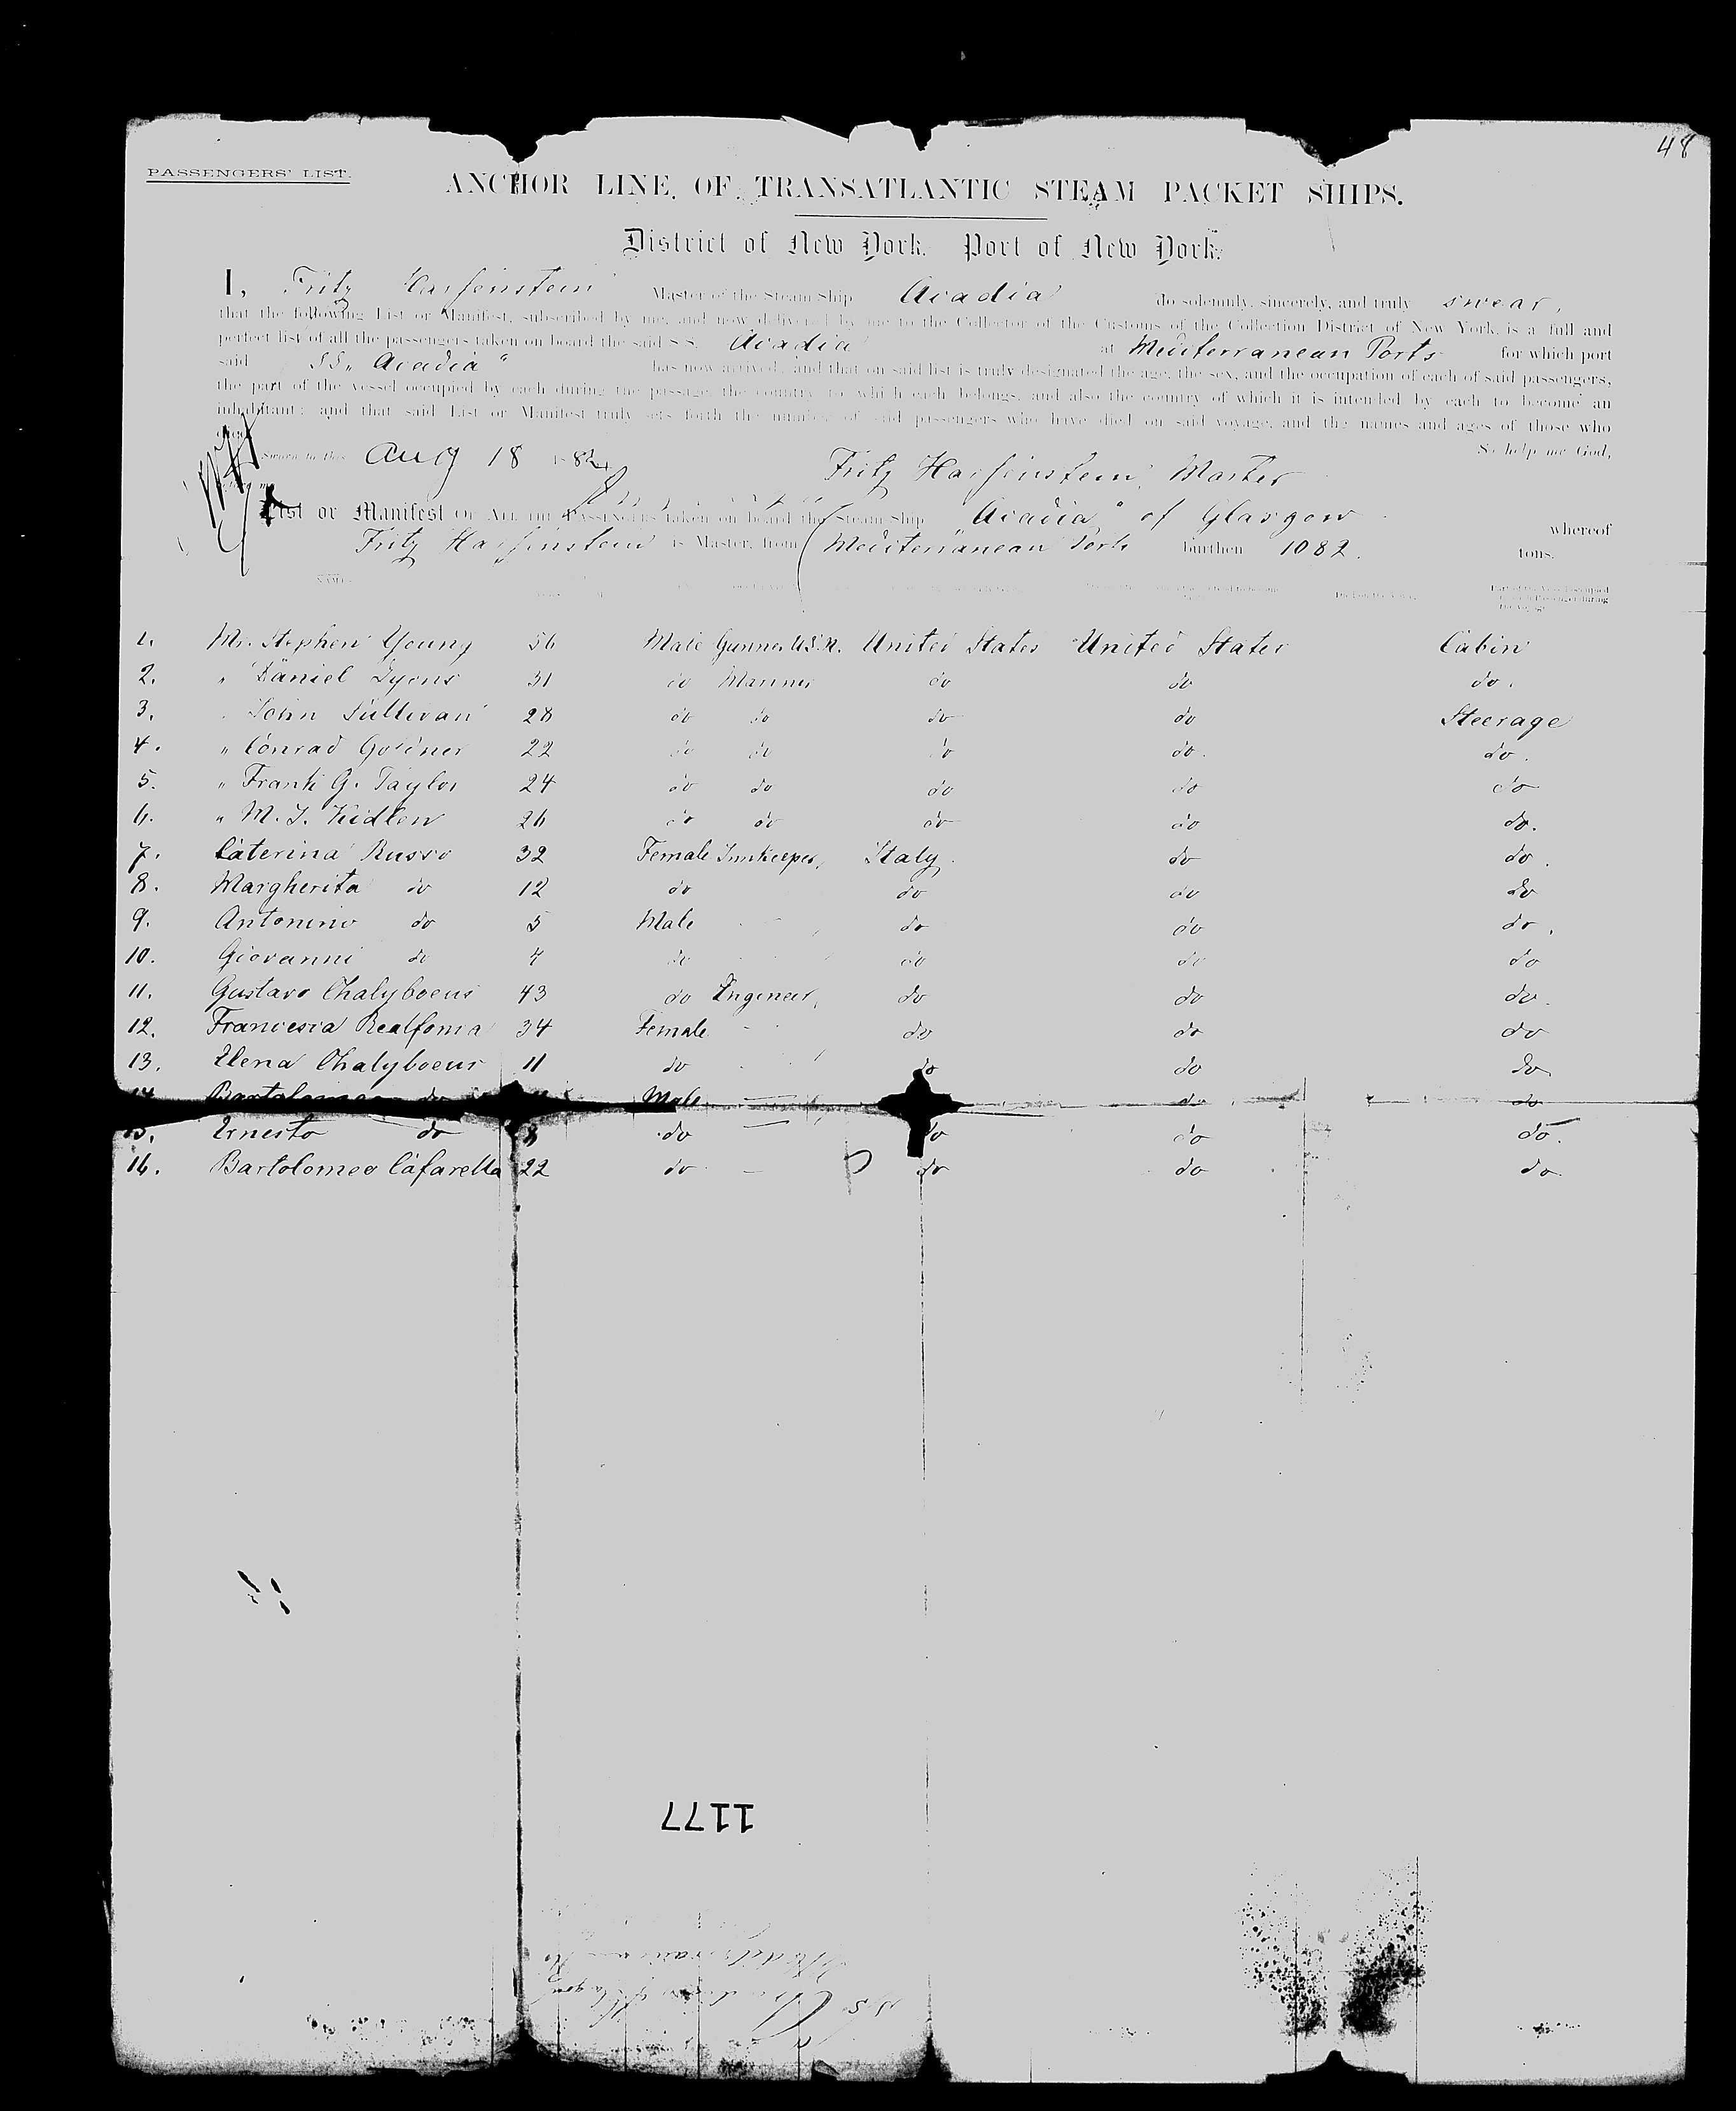 48
PASSENGERS' LIST.
ANCHOR LINE OF TRANSATLANTIC STEAM PACKET SHIPS.
District of New York. Port of New York.
I, Fritz Harfenstein Master of the Steam Ship Acadia do solemnly, sincerely, and truly swear,
that the following List or Manifest, subscribed by me, and now delivered by me to the Collector of the Customs of the Collection District of New York, is a full and
perfect list of all the passengers taken on board the said S.S. Acadia at Mediterranean Ports for which port
said SS "Acadia" has now arrived; and that on said list is truly designated the age, the sex, and the occupation of each of said passengers,
the part of the vessel occupied by each during the passage, the country to which each belongs, and also the country of which it is intended by each to become an
inhabitant; and that said List or Manifest truly sets forth the number of said passengers who have died on said voyage, and the names and ages of those who
So help me God,
Sworn to this Aug 18 188
Fritz Harfenstein, Master
List or Manifest OF ALL THE PASSENGERS taken on board the Steam Ship "Acadia" of Glasgow whereof
Fritz Harfenstein is Master, from Mediterranean Ports burthen 1082 tons.
NAMES
1. Mr. Stephen Young 56 Male Gunner U.S.N. United States United States Cabin
2. " Daniel Lyons 31 do Mariner do do do.
3. " John Sullivan 28 do do do do Steerage
4. " Conrad Gordner 22 do do do do. do.
5. " Frank G. Taylor 24 do do do do do
6. " M. J. Kidlen 26 do do do do do.
7. Caterina Russo 32 Female Innkeeper, Italy. do do.
8. Margherita do 12 do do do do
9. Antonino do 5 Male do do do.
10. Giovanni do 4 do do do do
11. Gustavo Chalyboeus 43 do Engineer, do do do.
12. Francesca Realfonia 34 Female do do do
13. Elena Chalyboeus 11 do do do do.
14. Bartolomeo do Male. do do
15. Ernesto do 8 do do do do.
16. Bartolomeo Cafarella 22 do do do do.
1177